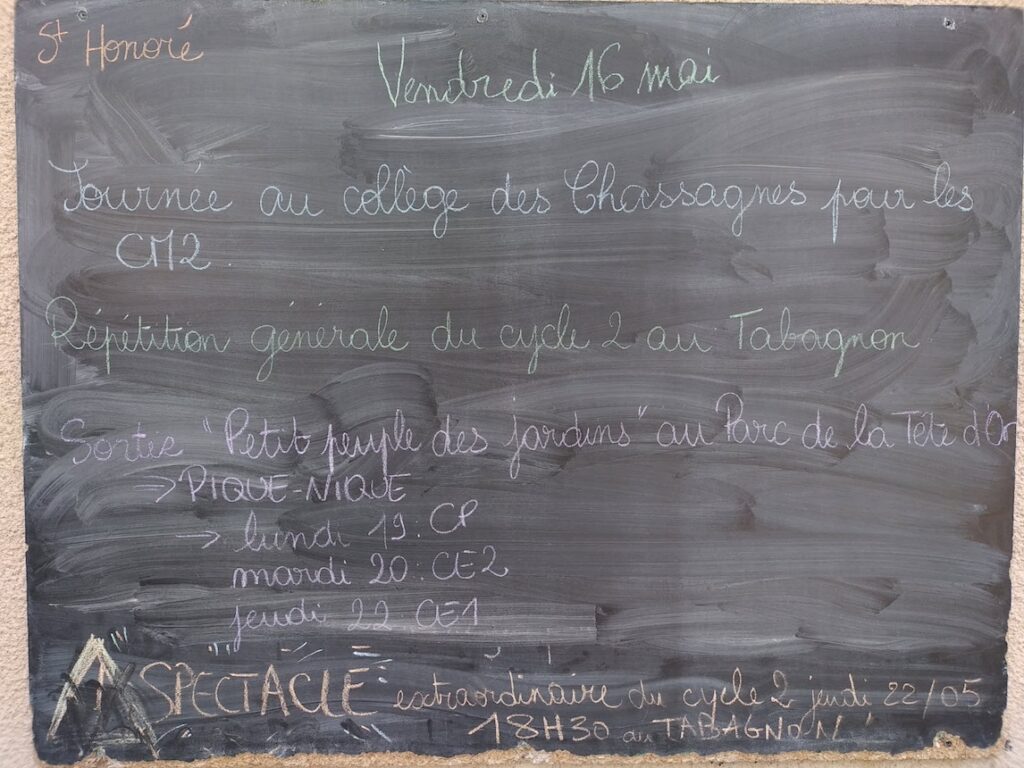 St Honoré
Vendredi 16 mai
Journée au collège des Chassagnes pour les
CM2.
Répétition générale du cycle 2 au Tabagnon
Sortie "Petit peuple des jardins" au Parc de la Tête d'Or
-> PIQUE-NIQUE
-> lundi 19 : CP
mardi 20 : CE2
jeudi 22 : CE1
SPECTACLE extraordinaire du cycle 2 jeudi 22/05
18H30 au TABAGNON